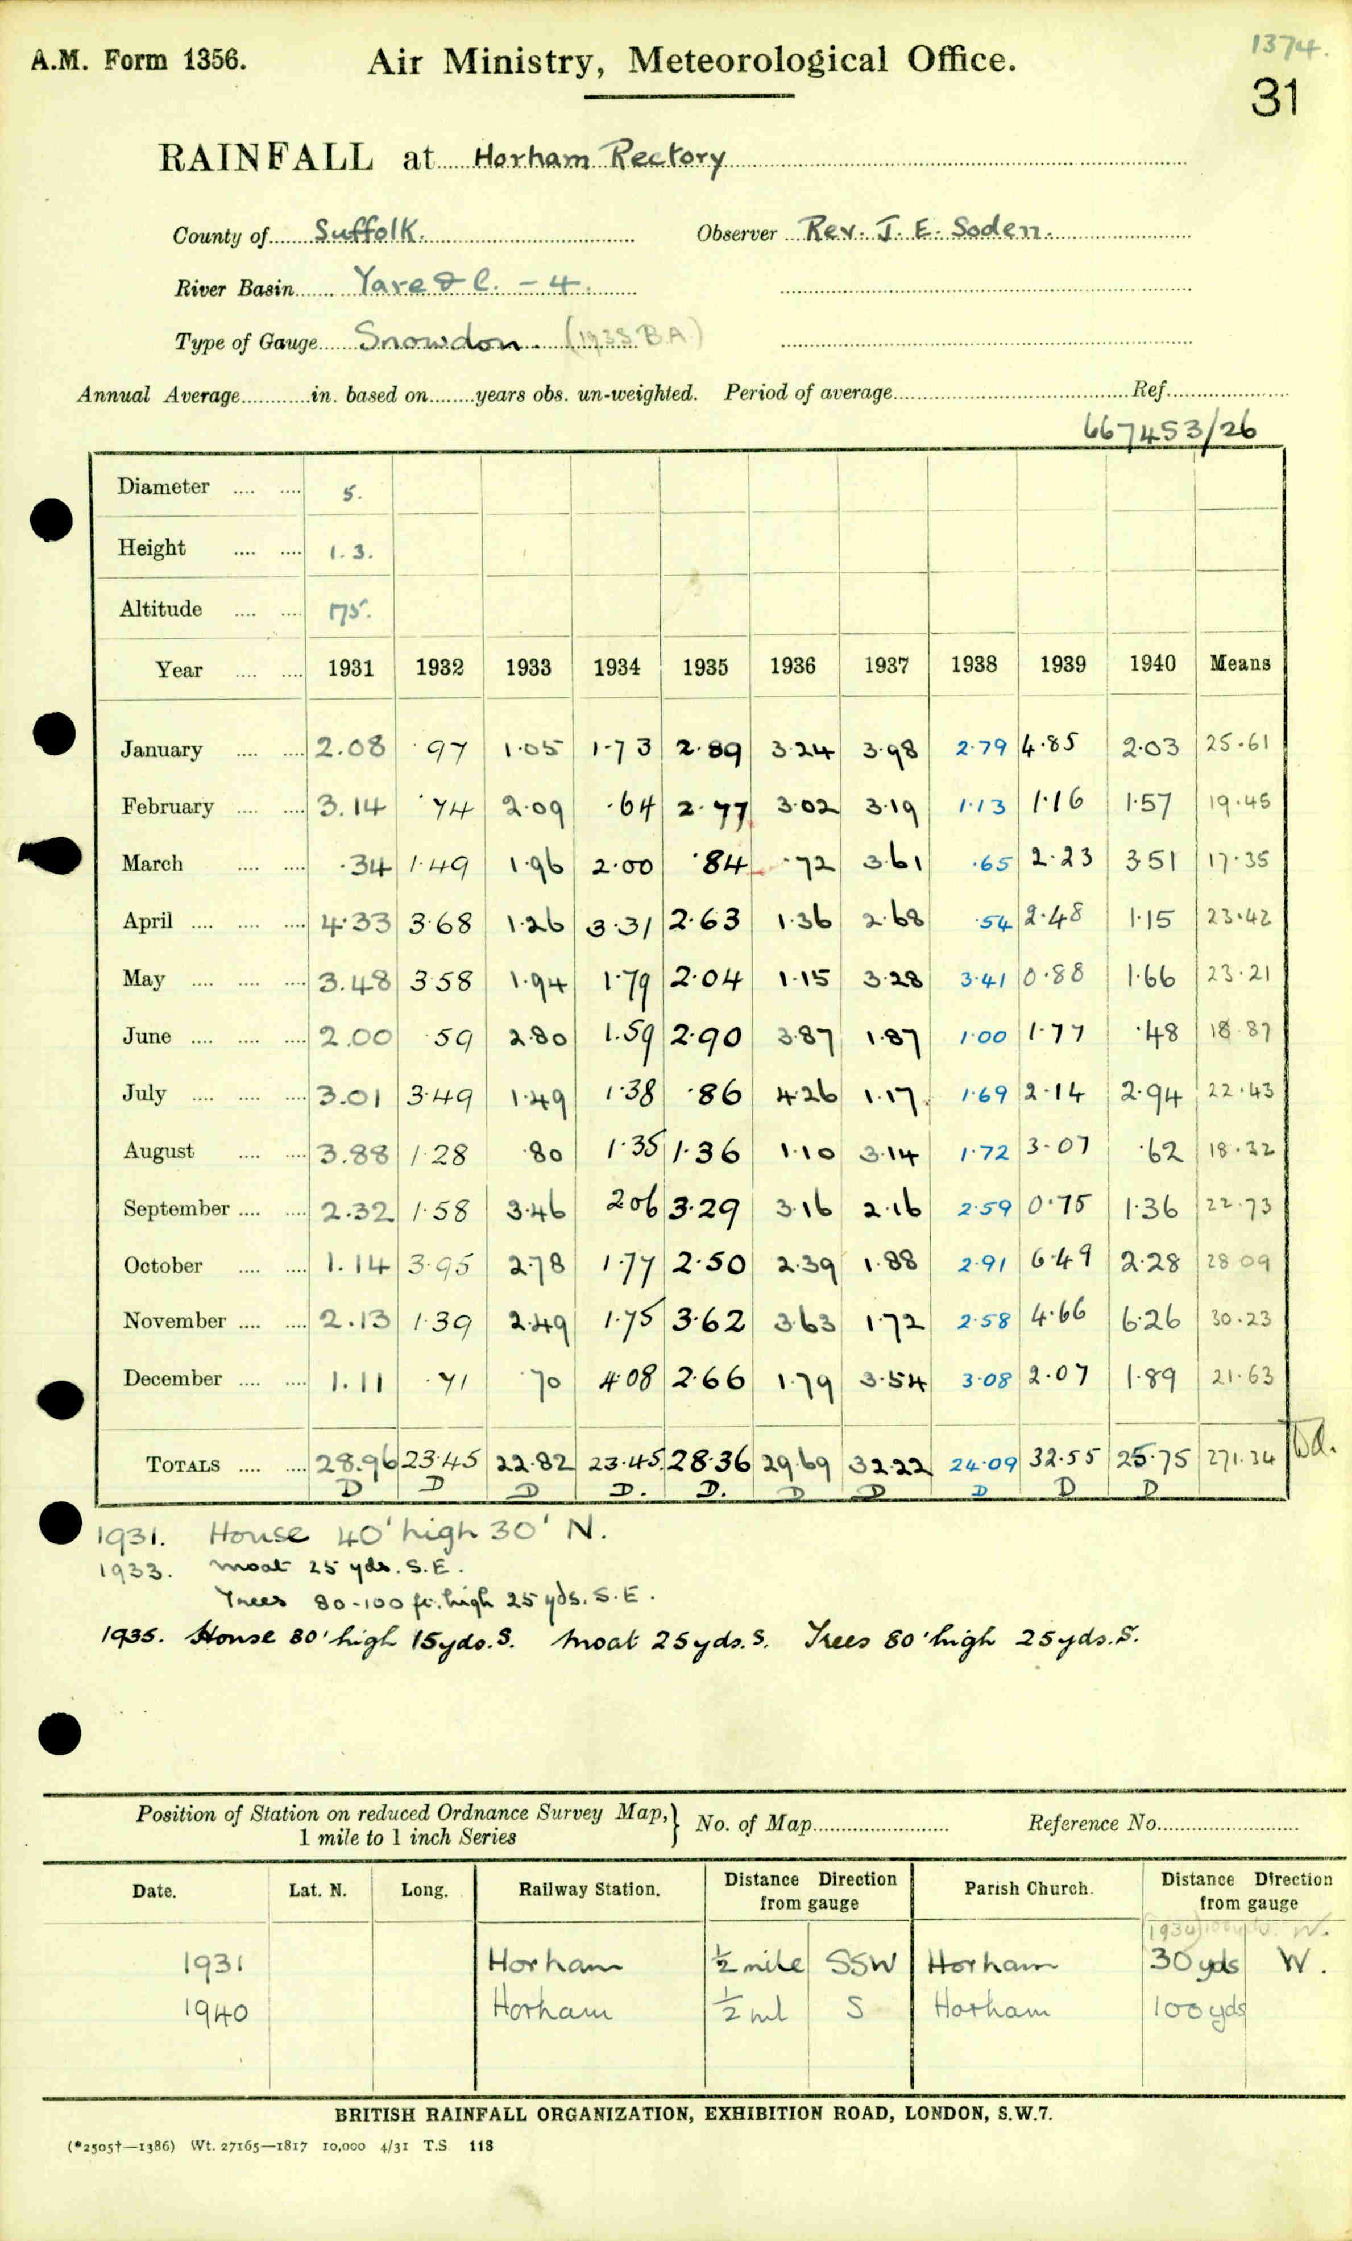 1374.
A.M. Form 1356. Air Ministry, Meteorological Office.
31
RAINFALL at Horham Rectory
County of Suffolk. Observer Rev. J. E. Soden.
River Basin Yare & C. - 4.
Type of Gauge Snowdon. (1935 B.A)
Annual Average in. based on years obs. un-weighted. Period of average Ref.
667453/26
Diameter 5.
Height 1.3.
Altitude 175.
Year 1931 1932 1933 1934 1935 1936 1937 1938 1939 1940 Means
January 2.08 .97 1.05 1.73 2.89 3.24 3.98 2.79 4.85 2.03 25.61
February 3.14 .74 2.09 .64 2.77 3.02 3.19 1.13 1.16 1.57 19.45
March .34 1.49 1.96 2.00 .84 .72 3.61 .65 2.23 3.51 17.35
April 4.33 3.68 1.26 3.31 2.63 1.36 2.68 .54 2.48 1.15 23.42
May 3.48 3.58 1.94 1.79 2.04 1.15 3.28 3.41 0.88 1.66 23.21
June 2.00 .59 2.80 1.59 2.90 3.87 1.87 1.00 1.77 .48 18.87
July 3.01 3.49 1.49 1.38 .86 4.26 1.17 1.69 2.14 2.94 22.43
August 3.88 1.28 .80 1.35 1.36 1.10 3.14 1.72 3.07 .62 18.32
September 2.32 1.58 3.46 2.06 3.29 3.16 2.16 2.59 0.75 1.36 22.73
October 1.14 3.95 2.78 1.77 2.50 2.39 1.88 2.91 6.49 2.28 28.09
November 2.13 1.39 2.49 1.75 3.62 3.63 1.72 2.58 4.66 6.26 30.23
December 1.11 .71 .70 4.08 2.66 1.79 3.54 3.08 2.07 1.89 21.63
TOTALS 28.96 23.45 22.82 23.45 28.36 29.69 32.22 24.09 32.55 25.75 271.34
D D D D. D. D D D D D
1931. House 40' high 30' N.
1933. Moat 25 yds. S.E.
Trees 80-100 ft. high 25 yds. S.E.
1935. House 30' high 15yds. S. Moat 25yds. S. Trees 80' high 25yds. S.
Position of Station on reduced Ordnance Survey Map,} No. of Map Reference No.
1 mile to 1 inch Series
Date. Lat. N. Long. Railway Station. Distance Direction from gauge Parish Church. Distance Direction from gauge
1931 Horham ½ mile SSW Horham 30 yds W.
1940 Horham ½ ml S Horham 100 yds
BRITISH RAINFALL ORGANIZATION, EXHIBITION ROAD, LONDON, S.W.7.
(*2505†—1386) Wt. 27165—1817 10,000 4/31 T.S. 118